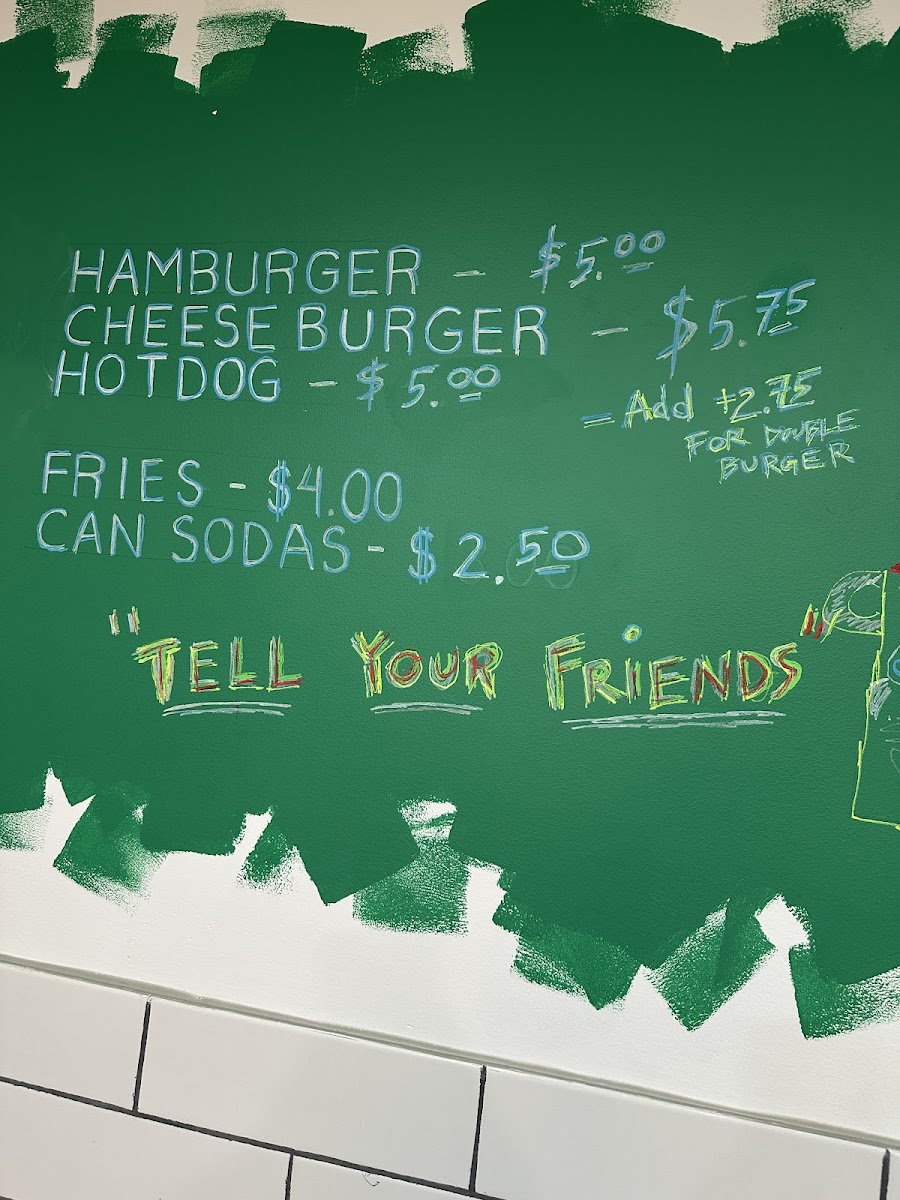 HAMBURGER - $5.00
CHEESE BURGER - $5.75
HOTDOG - $5.00
= Add +2.75
FOR DOUBLE
BURGER
FRIES - $4.00
CAN SODAS - $2.50
"TELL YOUR FRiENDS"